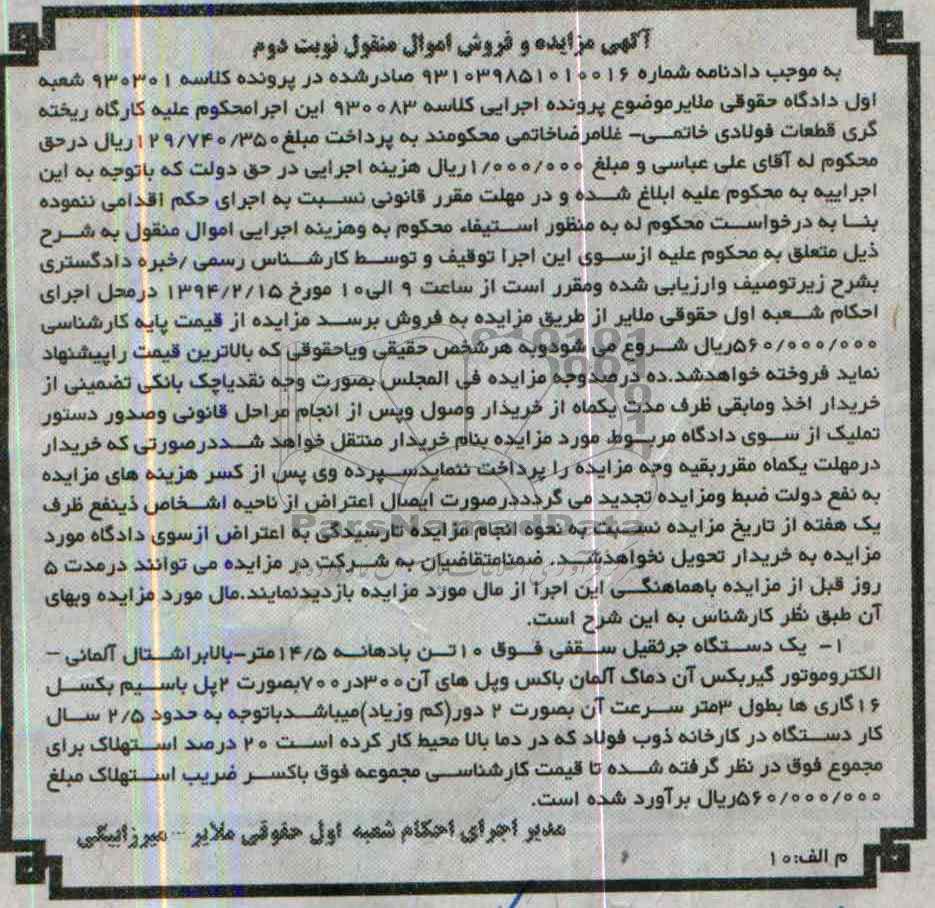 آگهی مزایده و فروش اموال منقول نوبت دوم
به موجب دادنامه شماره ۹۳۱۰۳۹۸۵۱۰۱۰۰۱۶ صادرشده در پرونده کلاسه ۹۳۰۳۰۱ شعبه
اول دادگاه حقوقی ملایرموضوع پرونده اجرایی کلاسه ۹۳۰۰۸۳ این اجرامحکوم علیه کارگاه ریخته
گری قطعات فولادی خاتمی- غلامرضاخاتمی محکومند به پرداخت مبلغ۱۲۹/۷۴۰/۳۵۰ریال درحق
محکوم له آقای علی عباسی و مبلغ ۱/۰۰۰/۰۰۰ریال هزینه اجرایی در حق دولت که باتوجه به این
اجراییه به محکوم علیه ابلاغ شده و در مهلت مقرر قانونی نسبت به اجرای حکم اقدامی ننموده
بنا به درخواست محکوم له به منظور استیفاء محکوم به وهزینه اجرایی اموال منقول به شرح
ذیل متعلق به محکوم علیه ازسوی این اجرا توقیف و توسط کارشناس رسمی /خبره دادگستری
بشرح زیرتوصیف وارزیابی شده ومقرر است از ساعت ۹ الی۱۰ مورخ ۱۳۹۴/۲/۱۵ درمحل اجرای
احکام شعبه اول حقوقی ملایر از طریق مزایده به فروش برسد مزایده از قیمت پایه کارشناسی
۵۶۰/۰۰۰/۰۰۰ریال شروع می شودوبه هرشخص حقیقی ویاحقوقی که بالاترین قیمت راپیشنهاد
نماید فروخته خواهدشد.ده درصدوجه مزایده فی المجلس بصورت وجه نقدیاچک بانکی تضمینی از
خریدار اخذ ومابقی ظرف مدت یکماه از خریدار وصول وپس از انجام مراحل قانونی وصدور دستور
تملیک از سوی دادگاه مربوط، مورد مزایده بنام خریدار منتقل خواهد شددرصورتی که خریدار
درمهلت یکماه مقرربقیه وجه مزایده را پرداخت ننمایدسپرده وی پس از کسر هزینه های مزایده
به نفع دولت ضبط ومزایده تجدید می گردددرصورت ایصال اعتراض از ناحیه اشخاص ذینفع ظرف
یک هفته از تاریخ مزایده نسبت به نحوه انجام مزایده تارسیدگی به اعتراض ازسوی دادگاه مورد
مزایده به خریدار تحویل نخواهدشد. ضمنامتقاضیان به شرکت در مزایده می توانند درمدت ۵
روز قبل از مزایده باهماهنگی این اجرا از مال مورد مزایده بازدیدنمایند.مال مورد مزایده وبهای
آن طبق نظر کارشناس به این شرح است.
۱- یک دستگاه جرثقیل سقفی فوق ۱۰تن بادهانه ۱۴/۵متر-بالابراشتال آلمانی -
الکتروموتور گیربکس آن دماگ آلمان باکس وپل های آن۳۰۰در۷۰۰بصورت ۲پل باسیم بکسل
۱۶گاری ها بطول ۳متر سرعت آن بصورت ۲ دور(کم وزیاد)میباشدباتوجه به حدود ۲/۵ سال
کار دستگاه در کارخانه ذوب فولاد که در دما بالا محیط کار کرده است ۲۰ درصد استهلاک برای
مجموع فوق در نظر گرفته شده تا قیمت کارشناسی مجموعه فوق باکسر ضریب استهلاک مبلغ
۵۶۰/۰۰۰/۰۰۰ریال برآورد شده است.
مدیر اجرای احکام شعبه اول حقوقی ملایر - میرزابیگی
م الف:۱۰
ParsNamadData